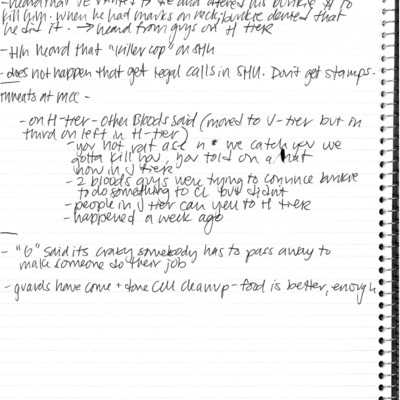 -heard that
kill him. when he had marks on neck, bunkie denied that
he did it. → heard from guys on H tier
-Hm heard that "killer cop" on SHU
-does not happen that get legal calls in SHU. Don't get stamps.
threats at MCC -
-on H-tier - other Bloods said (moved to V-tier but in
third on left in H-tier)
-you hot rat ass n* we catch you we
gotta kill you, you told on a
now in J tier
-2 bloods guys were trying to convince bunkie
to do something to CL but didnt
-people in J tier can yell to H tier
-happened a week ago
- "G" said its crazy somebody has to pass away to
make someone do their job
-guards have come + done cell cleanup - food is better, enough